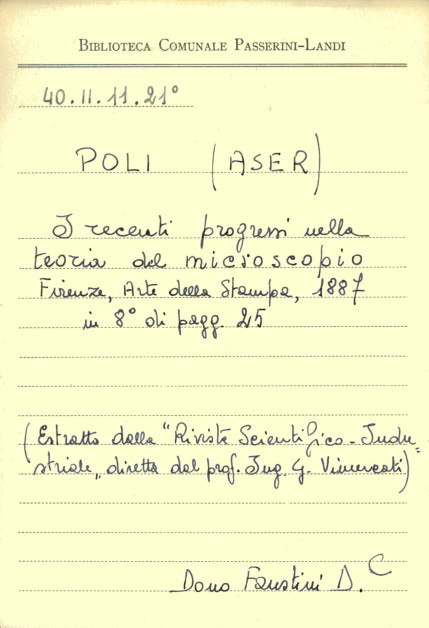 BIBLIOTECA COMUNALE PASSERINI-LANDI
40.II.11.21°
POLI (ASER)
I recenti progressi nella
teoria del microscopio
Firenze, Arte della Stampa, 1887
in 8° di pagg. 25
(Estratto dalla "Rivista Scientifico-Indu=
striale„ diretta dal prof. Ing. G. Vimercati)
Dono Faustini D. C